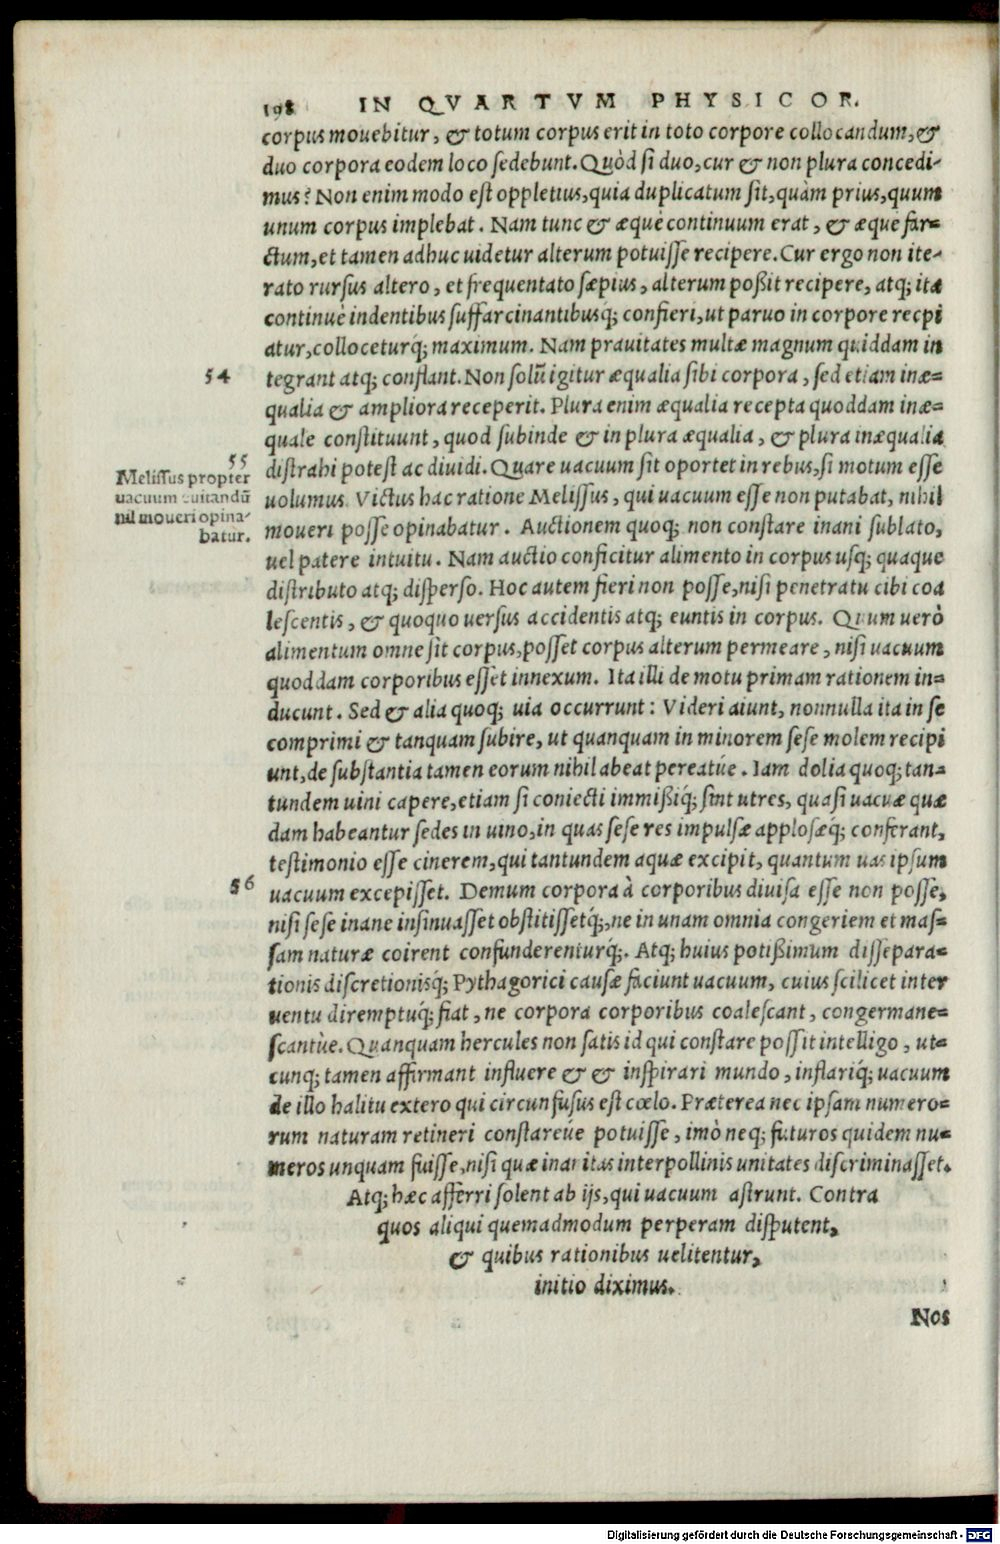 198 IN QVARTVM PHYSICOR.
corpus mouebitur, & totum corpus erit in toto corpore collocandum, &
duo corpora eodem loco sedebunt. Quòd si duo, cur & non plura concedi-
mus? Non enim modo est oppletius, quia duplicatum sit, quàm prius, quum
unum corpus implebat. Nam tunc & æquè continuum erat, & æque far=
ctum, et tamen adhuc uidetur alterum potuisse recipere. Cur ergo non ite-
rato rursus altero, et frequentato sæpius, alterum poßit recipere, atq; ita
continuè indentibus suffarcinantibusq́; confieri, ut paruo in corpore recpi
atur, colloceturq́; maximum. Nam prauitates multæ magnum quiddam in
54
tegrant atq; constant. Non solũ igitur æqualia sibi corpora, sed etiam inæ=
qualia & ampliora receperit. Plura enim æqualia recepta quoddam inæ=
quale constituunt, quod subinde & in plura æqualia, & plura inæqualia
55
Melissus propter
uacuum euitandũ
nil moueri opina-
batur.
distrahi potest ac diuidi. Quare uacuum sit oportet in rebus, si motum esse
uolumus. Victus hac ratione Melissus, qui uacuum esse non putabat, nihil
moueri posse opinabatur. Auctionem quoq; non constare inani sublato,
uel patere intuitu. Nam auctio conficitur alimento in corpus usq; quaque
distributo atq; disperso. Hoc autem fieri non posse, nisi penetratu cibi coa
lescentis, & quoquo uersus accidentis atq; euntis in corpus. Quum uerò
alimentum omne sit corpus, posset corpus alterum permeare, nisi uacuum
quoddam corporibus esset innexum. Ita illi de motu primam rationem in=
ducunt. Sed & alia quoq; uia occurrunt: Videri aiunt, nonnulla ita in se
comprimi & tanquam subire, ut quanquam in minorem sese molem recipi
unt, de substantia tamen eorum nihil abeat pereatúe. Iam dolia quoq; tan=
tundem uini capere, etiam si coniecti immißiq́; sint utres, quasi uacuæ quæ
dam habeantur sedes in uino, in quas sese res impulsæ applosæq́; conferant,
testimonio esse cinerem, qui tantundem aquæ excipit, quantum uas ipsum
56
uacuum excepisset. Demum corpora à corporibus diuisa esse non posse,
nisi sese inane insinuasset obstitissetq́;, ne in unam omnia congeriem et mas=
sam naturæ coirent confunderenturq́;. Atq; huius potißimum dissepara=
tionis discretionisq́; Pythagorici causæ faciunt uacuum, cuius scilicet inter
uentu diremptuq́; fiat, ne corpora corporibus coalescant, congermane=
scantùe. Quanquam hercules non satis id qui constare possit intelligo, ut=
cunq; tamen affirmant influere & & inspirari mundo, inflariq́; uacuum
de illo halitu extero qui circunfusus est cœlo. Præterea nec ipsam numero=
rum naturam retineri constareúe potuisse, imò neq; futuros quidem nu=
meros unquam fuisse, nisi quæ inanitas interpollinis unitates discriminasset.
Atq; hæc afferri solent ab ijs, qui uacuum astrunt. Contra
quos aliqui quemadmodum perperam disputent,
& quibus rationibus uelitentur,
initio diximus.
Nos
Digitalisierung gefördert durch die Deutsche Forschungsgemeinschaft - DFG